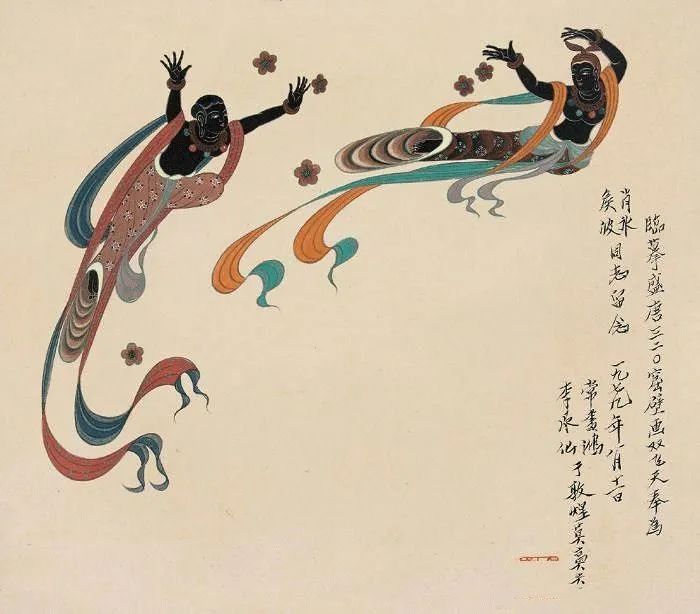 臨摹盛唐三二〇窟壁画双飞天奉為
肖氷
侯波
同志留念
一九七九年八月十一日
常書鴻
李承仙
于敦煌莫高窟